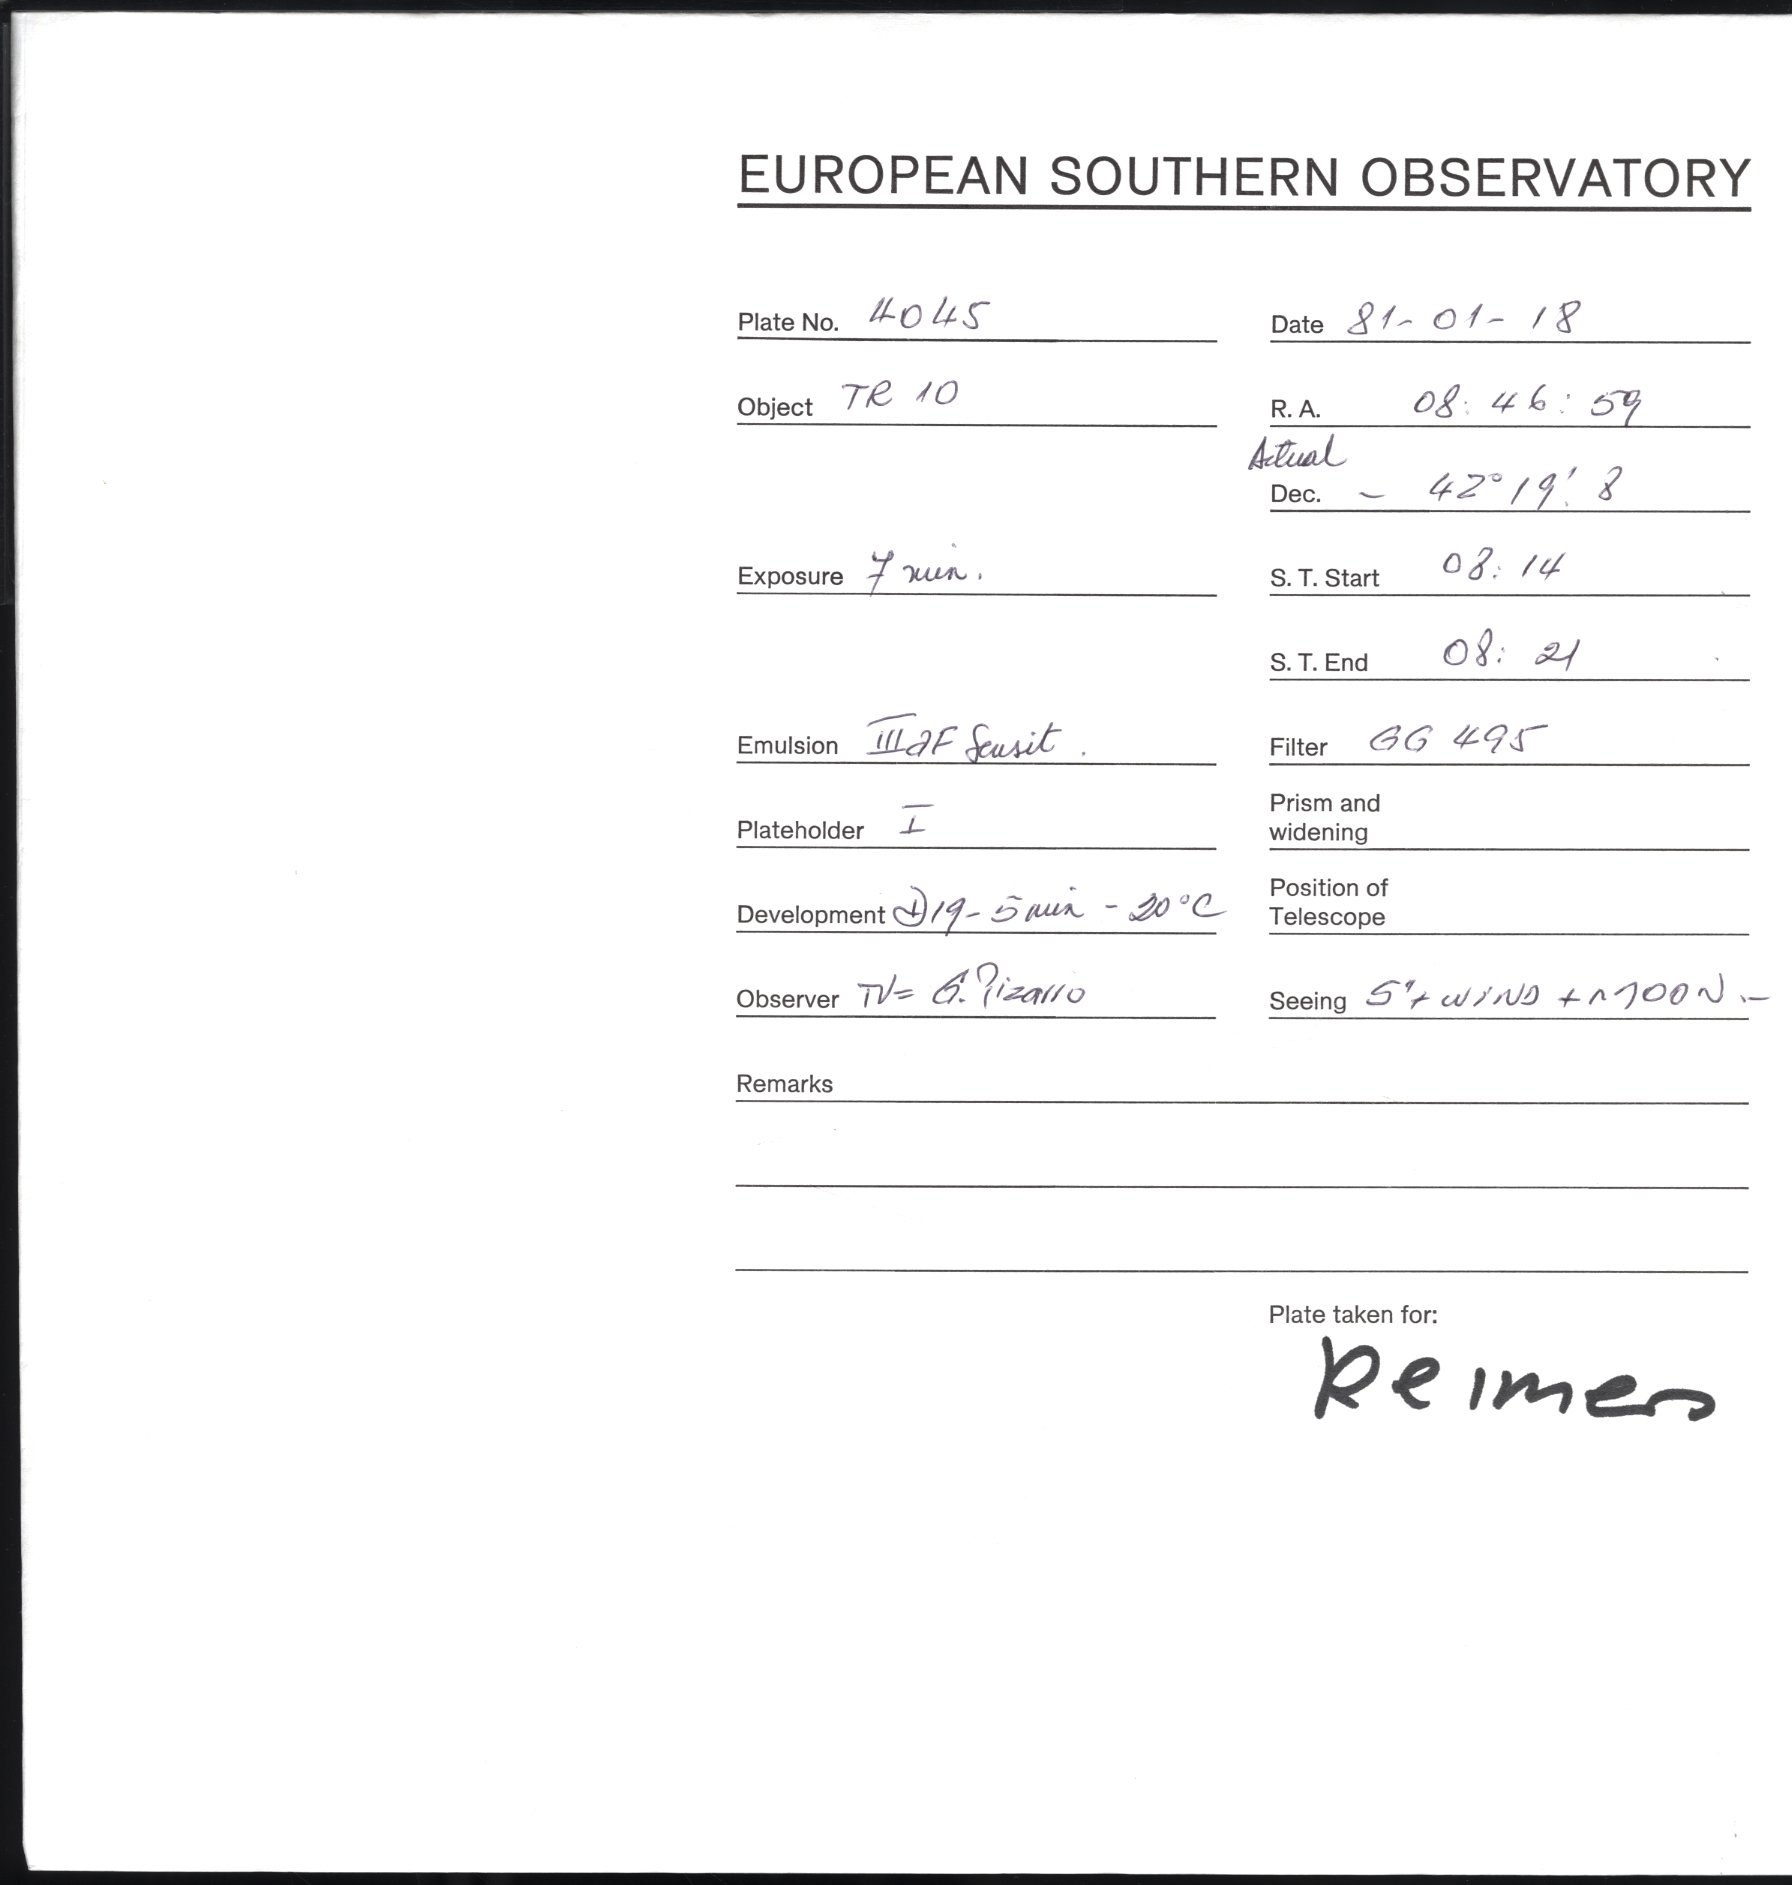 EUROPEAN SOUTHERN OBSERVATORY
Plate No. 4045
Date 81-01-18
Object TR 10
R. A. 08: 46: 59
Actual
Dec. - 42° 19'. 8
Exposure 7 min.
S. T. Start 08: 14
S. T. End 08: 21
Emulsion IIIaF Sensit.
Filter GG 495
Plateholder I
Prism and
widening
Development D19 - 5 min - 20°C
Position of
Telescope
Observer G. Pizarro
Seeing 5" + WIND + MOON.-
Remarks
Plate taken for:
Reimers